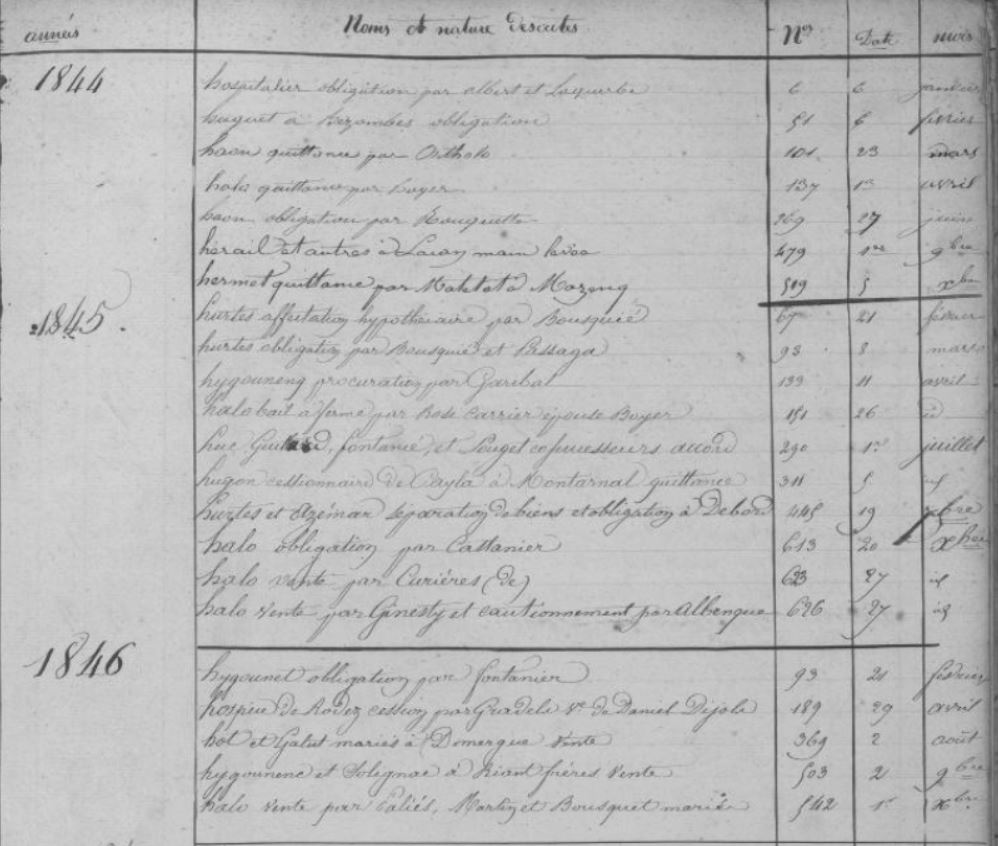 années Noms et nature des actes Nos Date mois
1844 hospitalier obligation par Albert et Laquerbe 6 6 janvier
huguet à Bezombes obligation 51 6 février
haon quittance par 101 23 mars
halo quittance par Boyer 137 13 avril
haon obligation par Rouquette 269 27 juin
hérail et autres à main levée 479 1er 9bre
hermet quittance par à Mazenq 519 5 xbre
1845. hurtes affectation hypothécaire par Bousquié 67 21 février
hurtes obligation par Bousquié et Pessaga 93 8 mars
hygounenq procuration par Garibal 133 11 avril
halo bail à ferme par Rose Carrier épouse Boyer 151 26 id
huc fontanié, et Pouget copossesseurs accord 290 1er juillet
hugon cessionnaire de Cayla à Montarnal quittance 311 5 id
hurtes et Azémar séparation de biens et obligation à Debord 445 19
halo obligation par Cattanier 613 20 xbre
halo vente par Curières (de) 623 27 id
halo vente par Ginesty et cautionnement par Albenque 626 27 id
1846 hygounet obligation par fontanier 93 21 février
hospice de Rodez cession par Gradels Ve de Daniel Dijols 189 29 avril
hot et Galut mariés à Domergue vente 369 2 août
hygounenc et Solegnac à Riant frères vente 503 2 9bre
halo vente par Caliés, Martin et Bousquet mariés 542 1er xbre